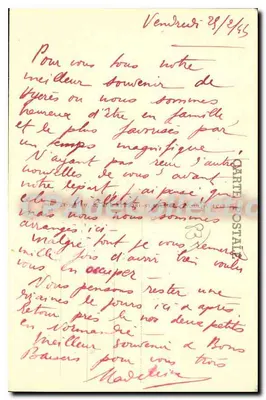 Vendredi 28/2/45
Pour vous tous notre
meilleur souvenir de
Hyères ou nous sommes
heureux d'être en famille
et le plus favorisés par
un temps magnifique.
N'ayant pas reçu d'autre
nouvelles de vous avant
notre départ j'ai pensé que
cela n'allait pas et
nous nous sommes
arrangés ici -
Malgré tout je vous remercie
mille fois d'avoir bien voulu
vous en occuper -
Nous pensons rester une
dizaine de jours ici et après
retour près de nos deux petits
en Normandie
Meilleur souvenir & Bons
Baisers pour vous trois
Madeleine
CARTE POSTALE